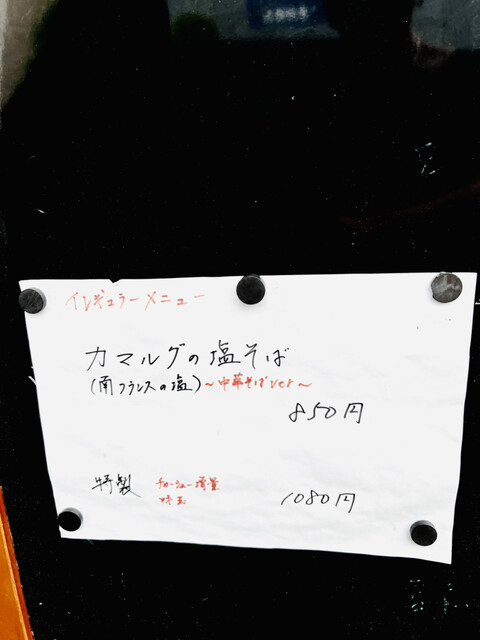 イレギュラーメニュー
カマルグの塩そば
(南フランスの塩)~中華そばver~
850円
特製 チャーシュー増量 1080円
味玉